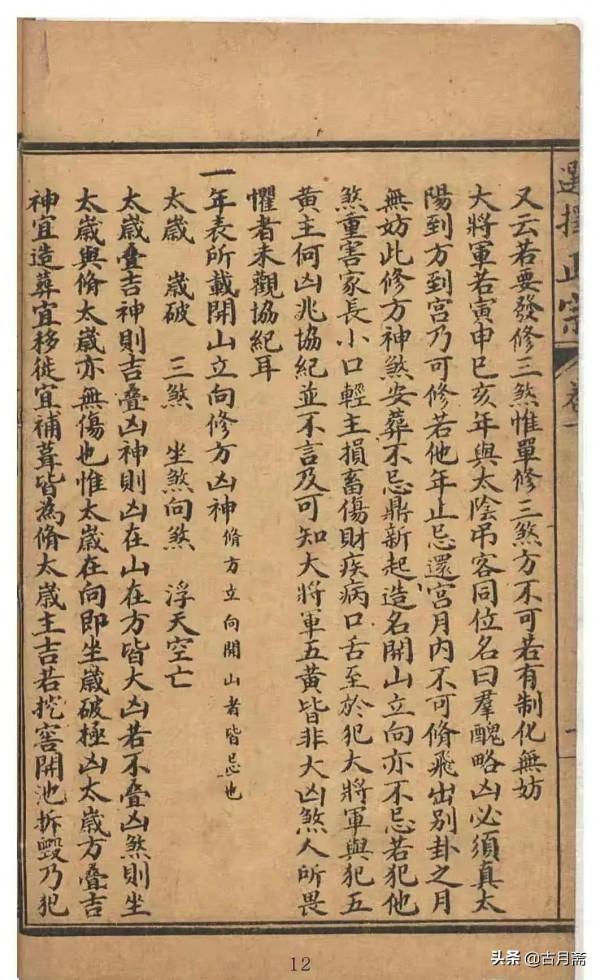 選擇正宗
卷一
又云若要發修三煞惟單修三煞方不可若有制化無妨
大將軍若寅申巳亥年與太陰弔客同位名曰羣醜略凶必須真太
陽到方到宮乃可修若他年止忌還宮月內不可脩飛出別卦之月
無妨此修方神煞安葬不忌鼎新起造名開山立向亦不忌若犯他
煞重害家長小口輕主損畜傷財疾病口舌至於犯大將軍與犯五
黃主何凶兆協紀並不言及可知大將軍五黃皆非大凶煞人所畏
懼者未觀協紀耳
一年表所載開山立向修方凶神脩方立向開山者皆忌也
太歲 歲破 三煞 坐煞向煞 浮天空亡
太歲疊吉神則吉疊凶神則凶在山在方皆大凶若不疊凶煞則坐
太歲與脩太歲亦無傷也惟太歲在向即坐歲破極凶太歲方疊吉
神宜造葬宜移徙宜補葺皆為脩太歲主吉若挖窖開池拆毀乃犯
12
头条 @古月斋